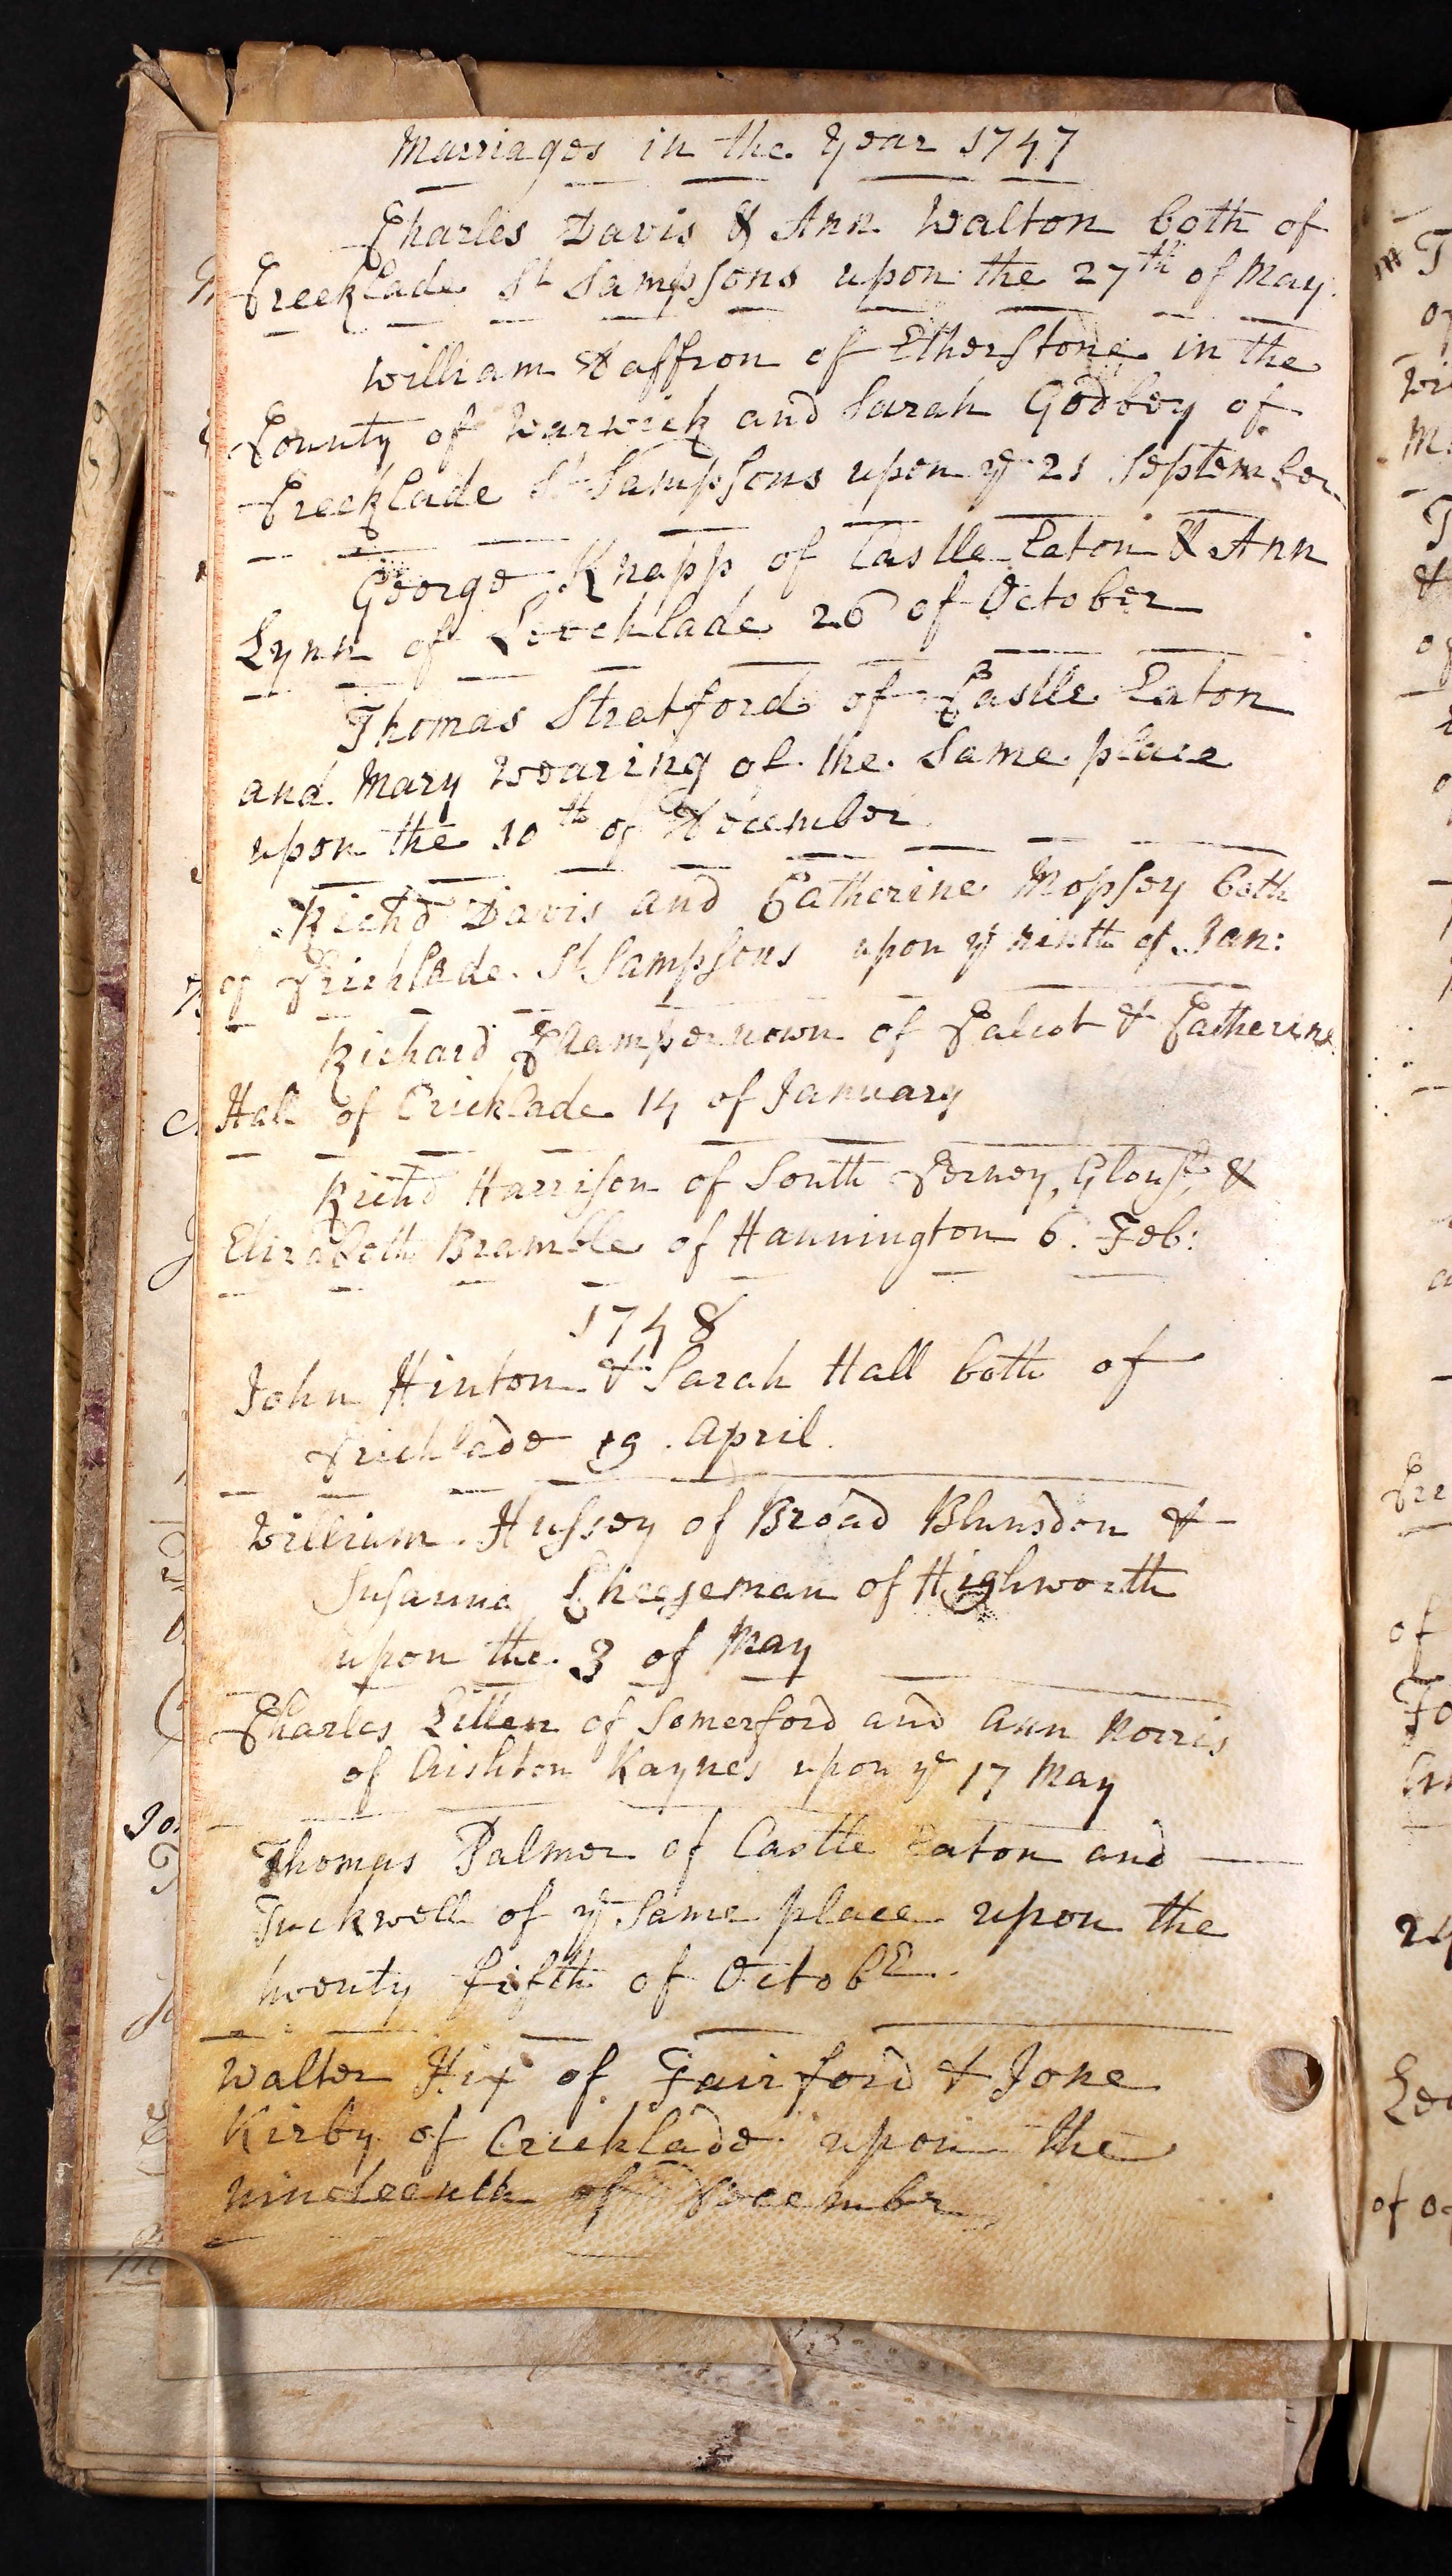 Marriages in the Year 1747
Charles Davis & Ann Walton both of
Creeklade St Sampsons upon the 27th of May
William Haffron of Etherstone in the
County of Warwick and Sarah Godbey of
Creeklade St Sampsons upon ye 21 September
George Knapp of Castle Eaton & Ann
Lynn of Leechlade 26 of October
Thomas Stratford of Castle Eaton
and Mary Wearing of the Same place
upon the 10th of December
Richd Davis and Catherine Mopsey both
of Cricklade St Sampsons upon ye ninth of Jan:
Richard Champernown of Calcot & Catherine
Hall of Cricklade 14 of January
Richd Harrison of South Cerney, Gloustr &
Elizabeth Bramble of Hannington 6. Feb:
1748
John Hinton & Sarah Hall both of
Cricklade 19. April.
William Hussey of Broad Blunsdon &
Susanna Cheeseman of Highworth
upon the 3 of May
Charles Litten of Somerford and Ann Norris
of Aishton Kaynes upon ye 17 May
Thomas Palmer of Castle Eaton and —
Tuckwell of ye Same place upon the
twenty fifth of Octobr.
Walter Hix of Fairford & Jone
Kirby of Cricklade upon the
nineteenth of Decembr